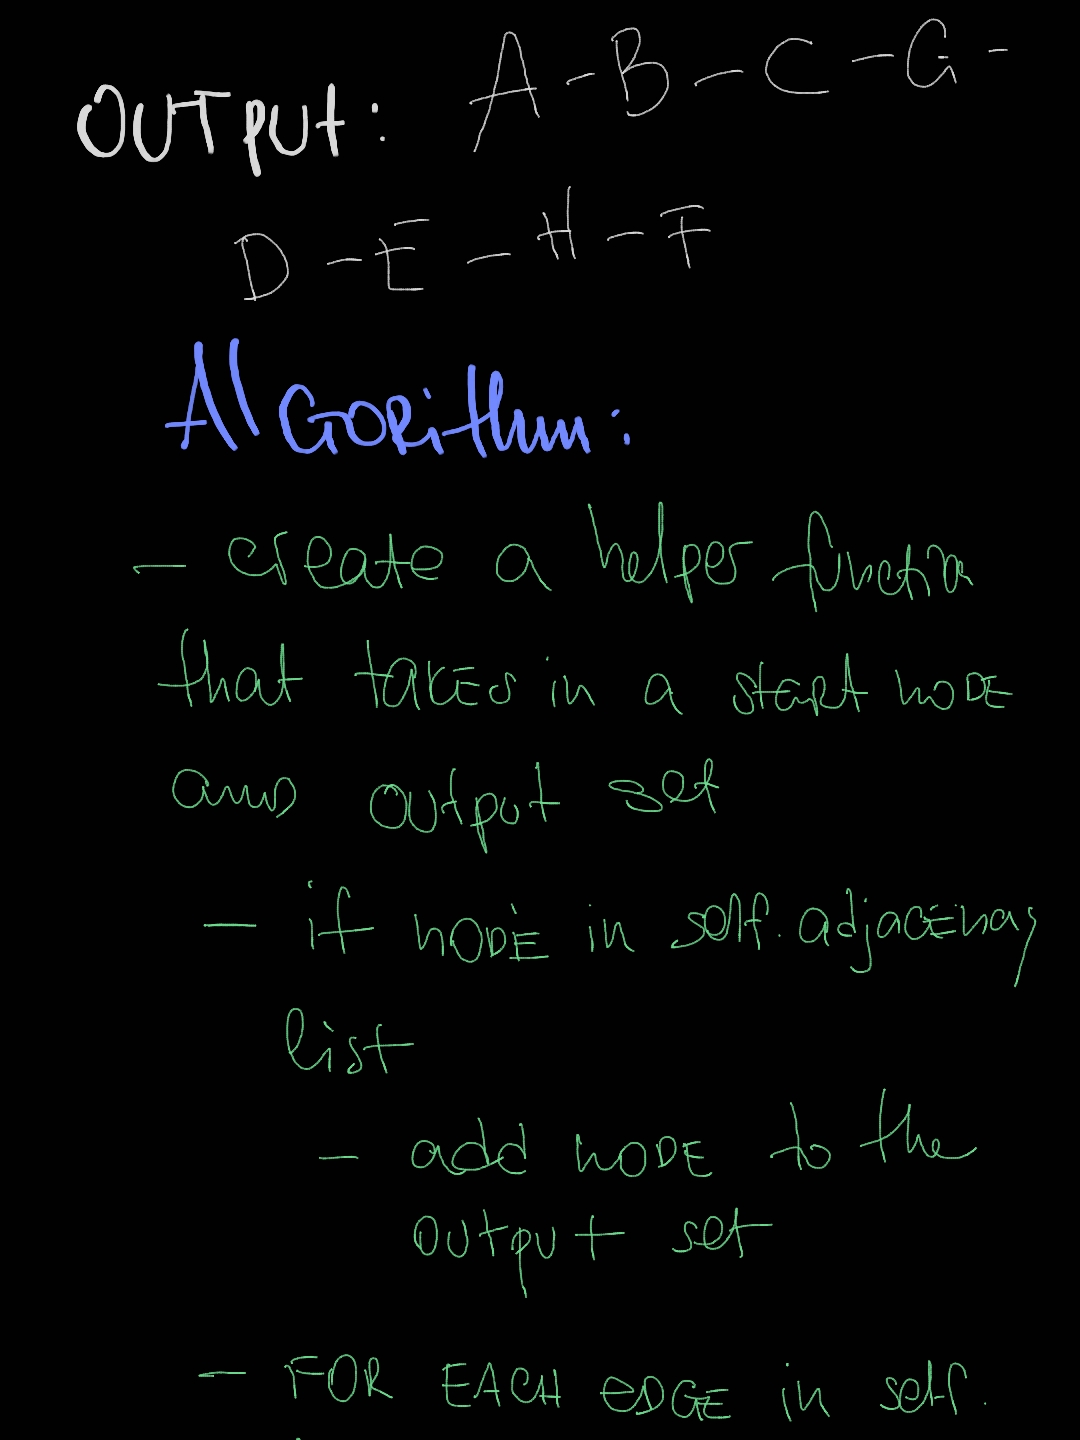 OUTPUT: A - B - C - G -
D - E - H - F
AlGORithm:
- create a helper function
that takes in a start node
and output set
- if node in self.adjacency
list
- add node to the
output set
- FOR EACH EDGE in self.